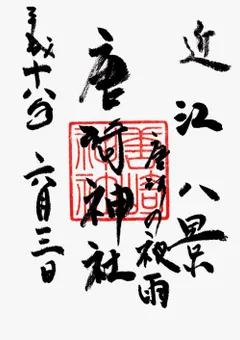 近江八景
唐崎の夜雨
唐崎神社
平成十八年 六月三日
唐崎
神社